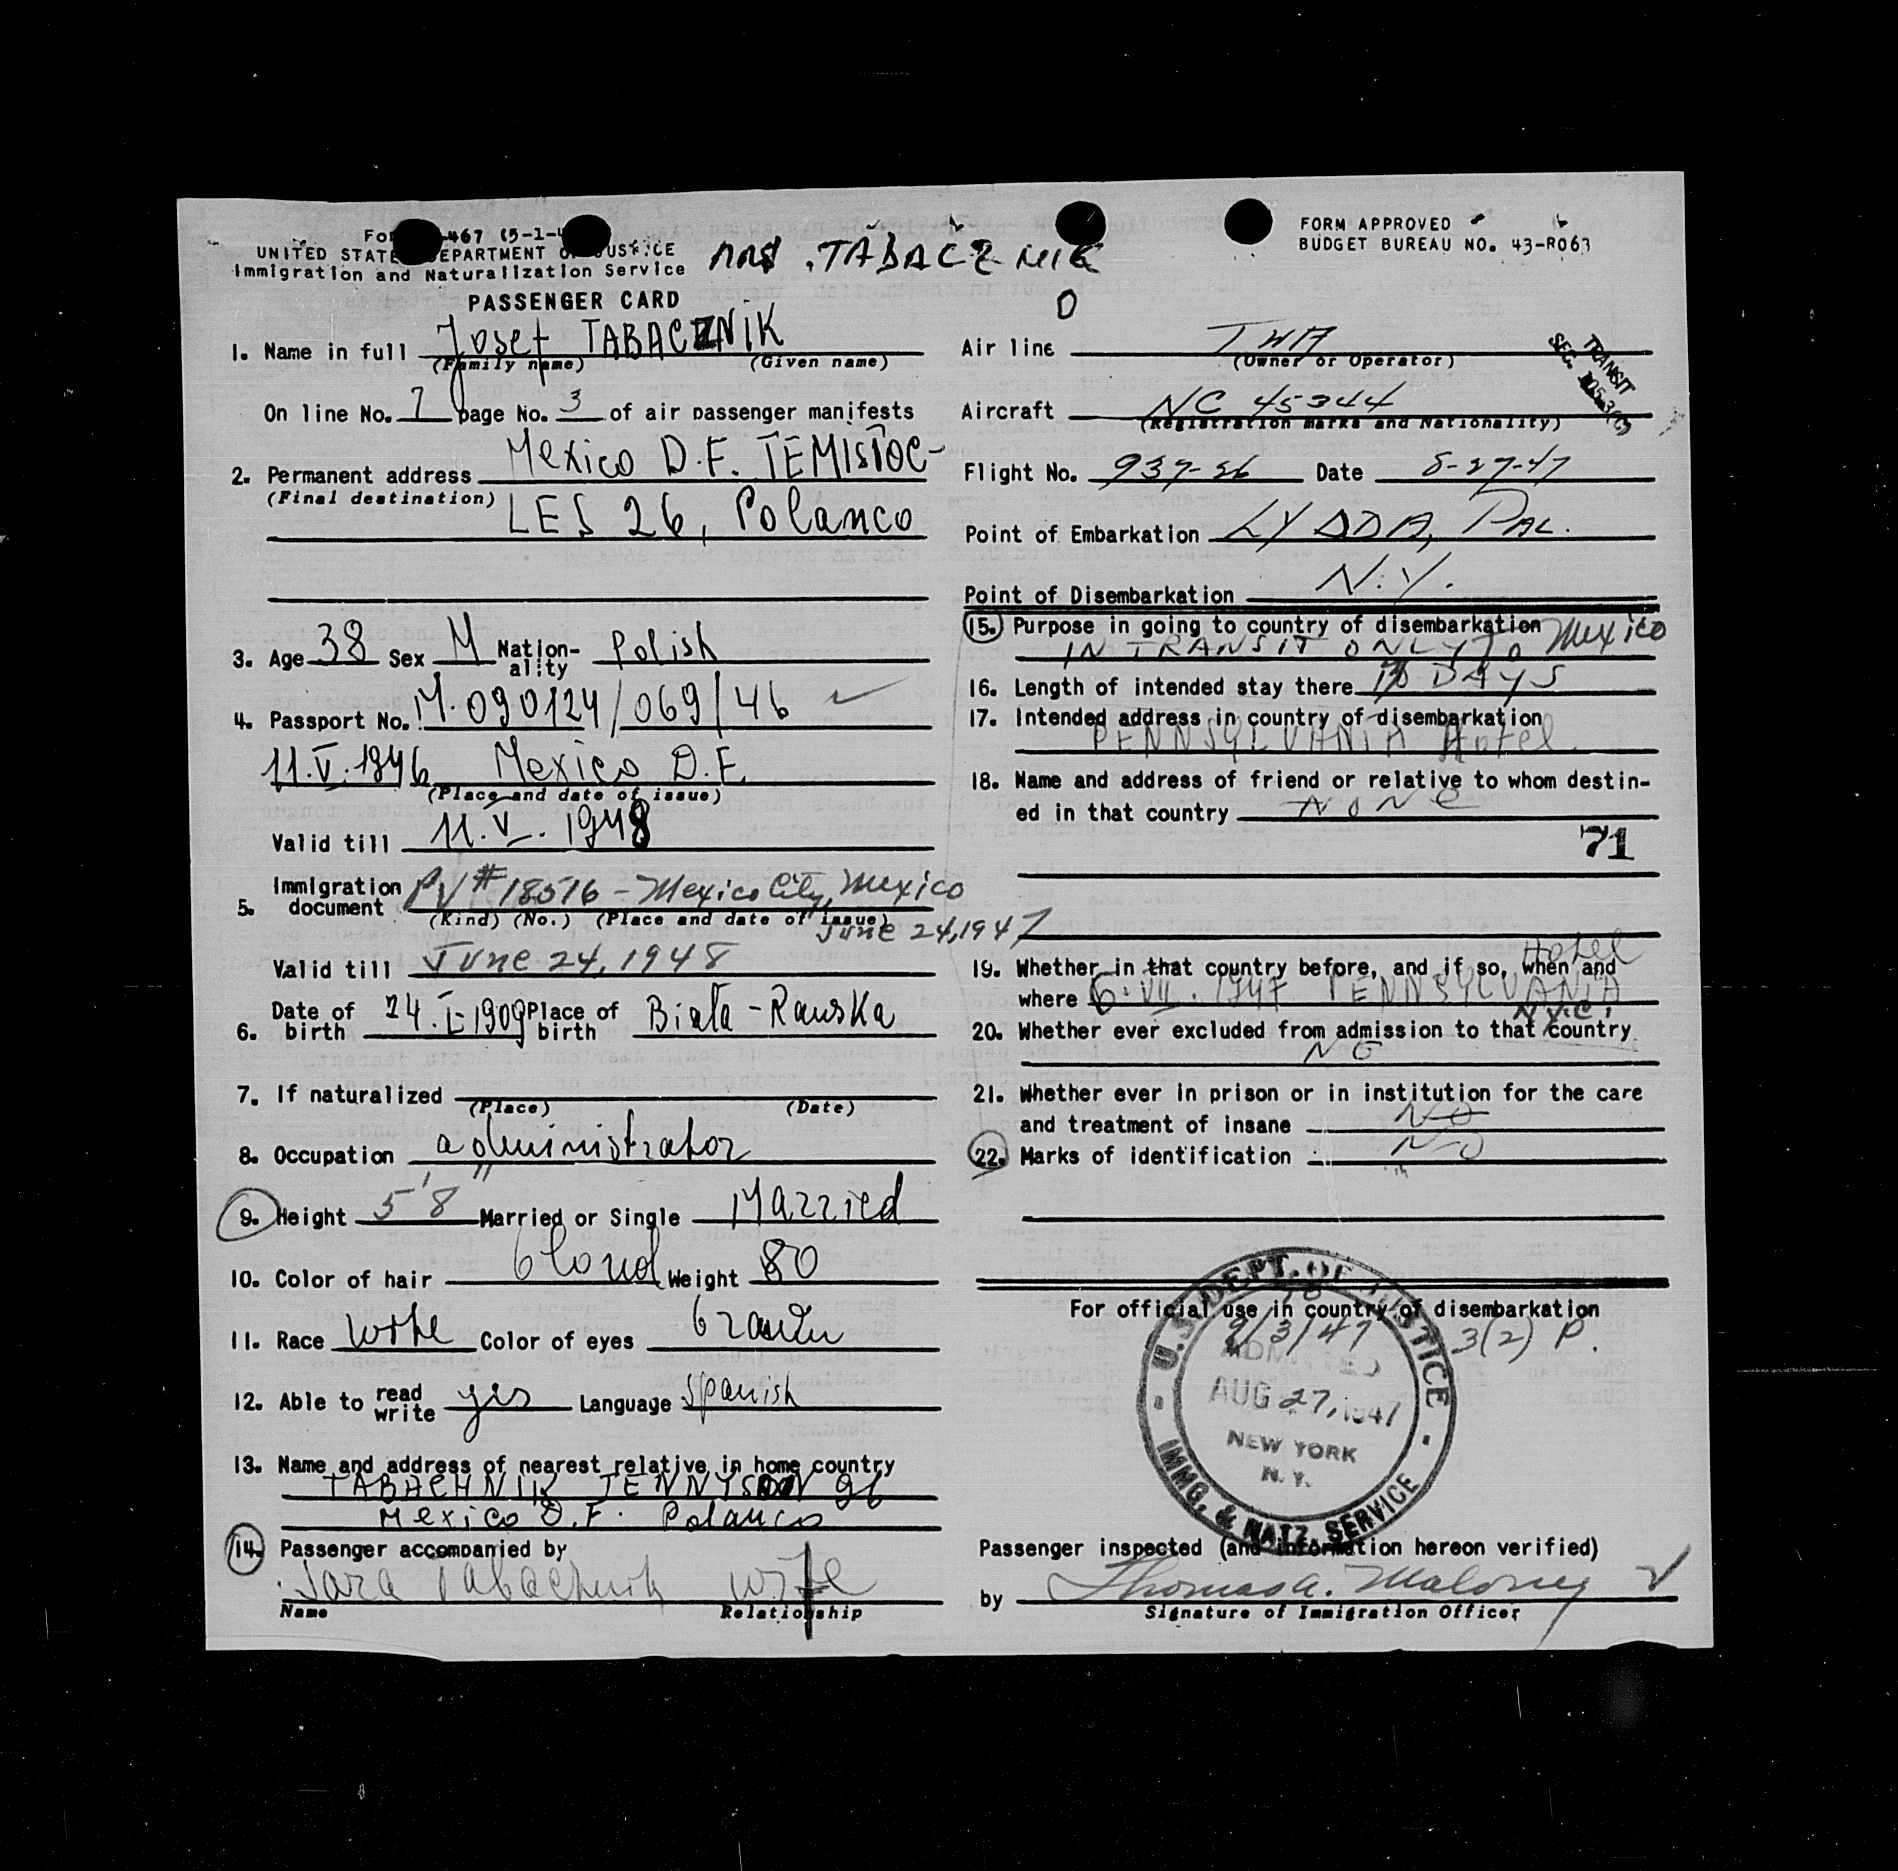 467 (5-1-4
UNITED STATE DEPARTMENT OF JUSTICE
Immigration and Naturalization Service
TABACZNIK
PASSENGER CARD
1. Name in full Josef TABACZNIK
(Family name) (Given name)
On line No. 7 page No. 3 of air passenger manifests
2. Permanent address Mexico D.F. TEMISTOC-
(Final destination) LES 26, Polanco
3. Age 38 Sex M Nationality Polish
4. Passport No. M.090124/069/46
11.V.1946 Mexico D.F.
(Place and date of issue)
Valid till 11.V.1948
5. Immigration document PV #18516 - Mexico City, Mexico
(Kind) (No.) (Place and date of issue)
June 24, 1947
Valid till June 24, 1948
6. Date of birth 24.I-1909 Place of birth Biała-Rawska
7. If naturalized
(Place) (Date)
8. Occupation administrator
9. Height 5'8" Married or Single Married
10. Color of hair blond Weight 80
11. Race Color of eyes
12. Able to read write yes Language Spanish
13. Name and address of nearest relative in home country
TABACHNIK TENNYSON 96
Mexico D.F. Polanco
14. Passenger accompanied by
Sara Tabachnik wife
Name Relationship
FORM APPROVED
BUDGET BUREAU NO. 43-R063
Air line TWA
(Owner or Operator)
TRANSIT
SEC.
Aircraft NC 45344
(Registration marks and Nationality)
Flight No. 937-26 Date 8-27-47
Point of Embarkation LYDDA, PAL.
Point of Disembarkation N.Y.
15. Purpose in going to country of disembarkation
IN TRANSIT ONLY To Mexico
16. Length of intended stay there 10 DAYS
17. Intended address in country of disembarkation
PENNSYLVANIA Hotel.
18. Name and address of friend or relative to whom destin-
ed in that country NONE
71
19. Whether in that country before, and if so, when and
where 6.VII.1947 Hotel PENNSYLVANIA
N.Y.C.
20. Whether ever excluded from admission to that country
NO
21. Whether ever in prison or in institution for the care
and treatment of insane NO
22. Marks of identification NO
For official use in country of disembarkation
9/3/47 3(2) P.
U.S. DEPT. OF JUSTICE
ADMITTED
AUG 27, 1947
NEW YORK
N.Y.
IMMG. & NATZ. SERVICE
Passenger inspected (and information hereon verified)
by Thomas A. Maloney
Signature of Immigration Officer